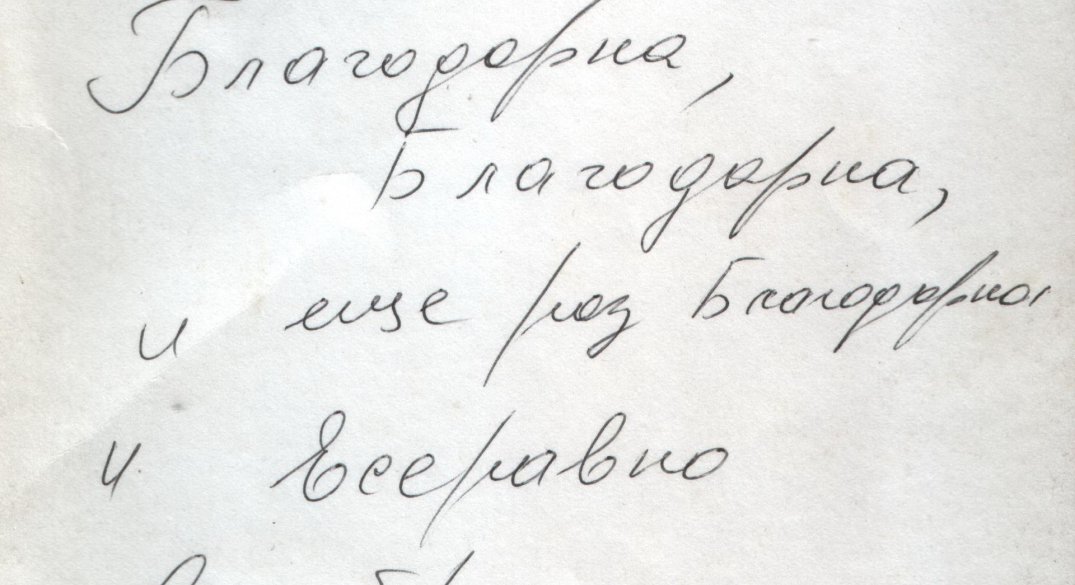 Благодарна,
Благодарна,
и еще раз Благодарна
и Всеравно